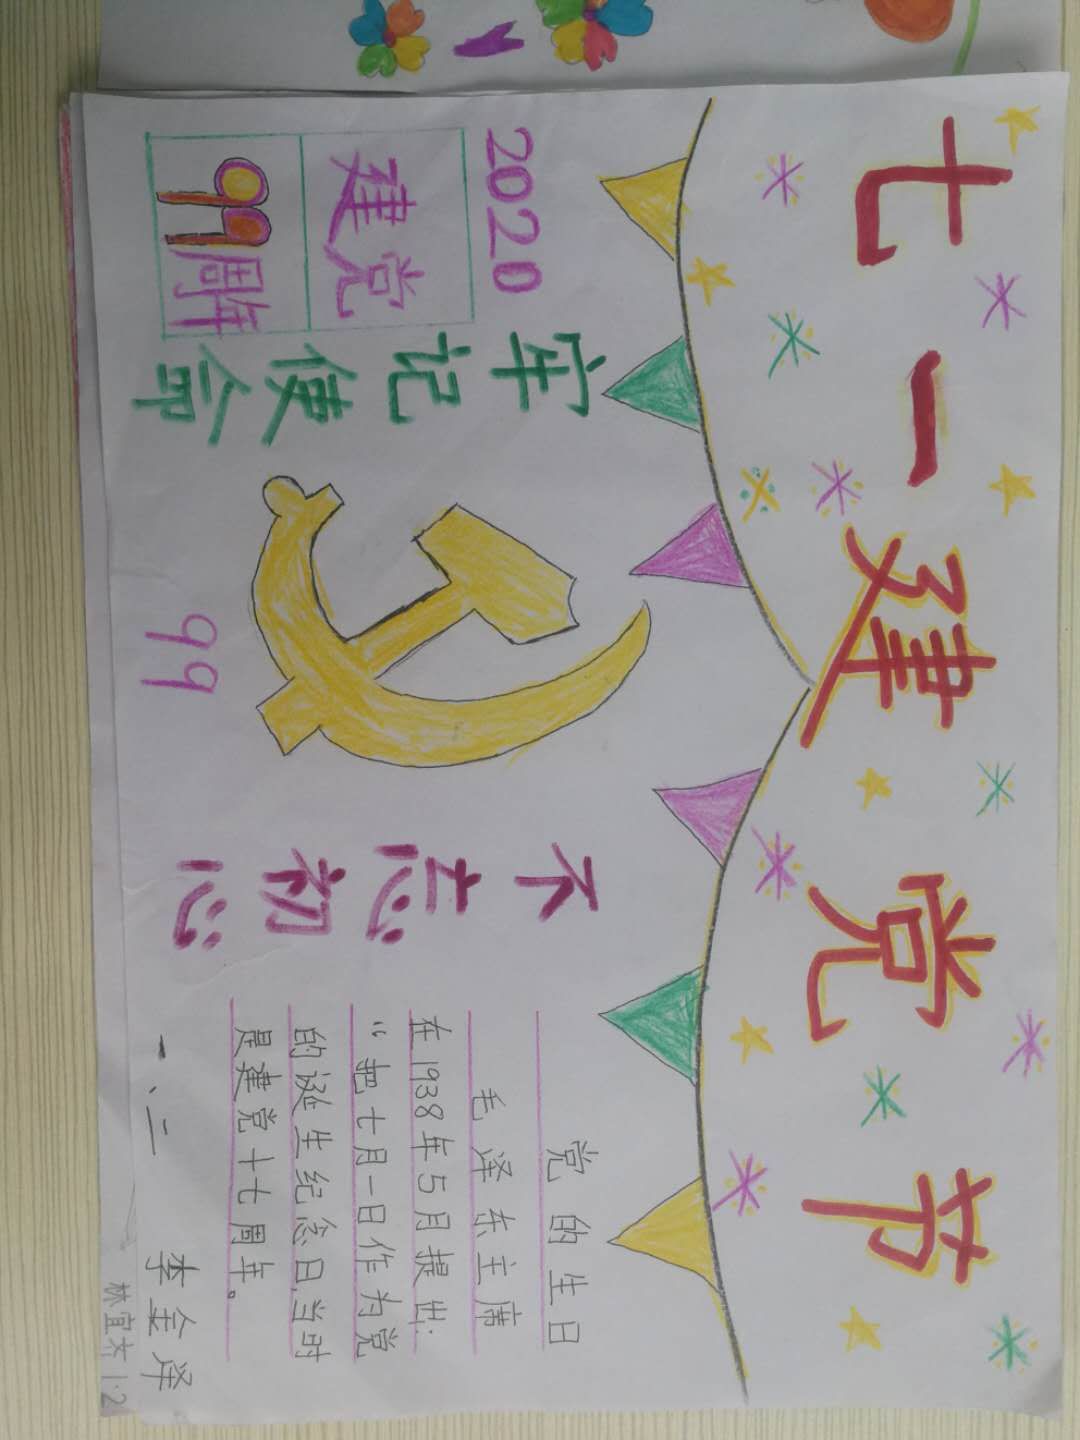 七一建党节
2020
建党
99周年
牢记使命
99
不忘初心
党的生日
毛泽东主席
在1938年5月提出:
“把七月一日作为党
的诞生纪念日,当时
是建党十七周年。
一、二 李金泽
林宜 1.2